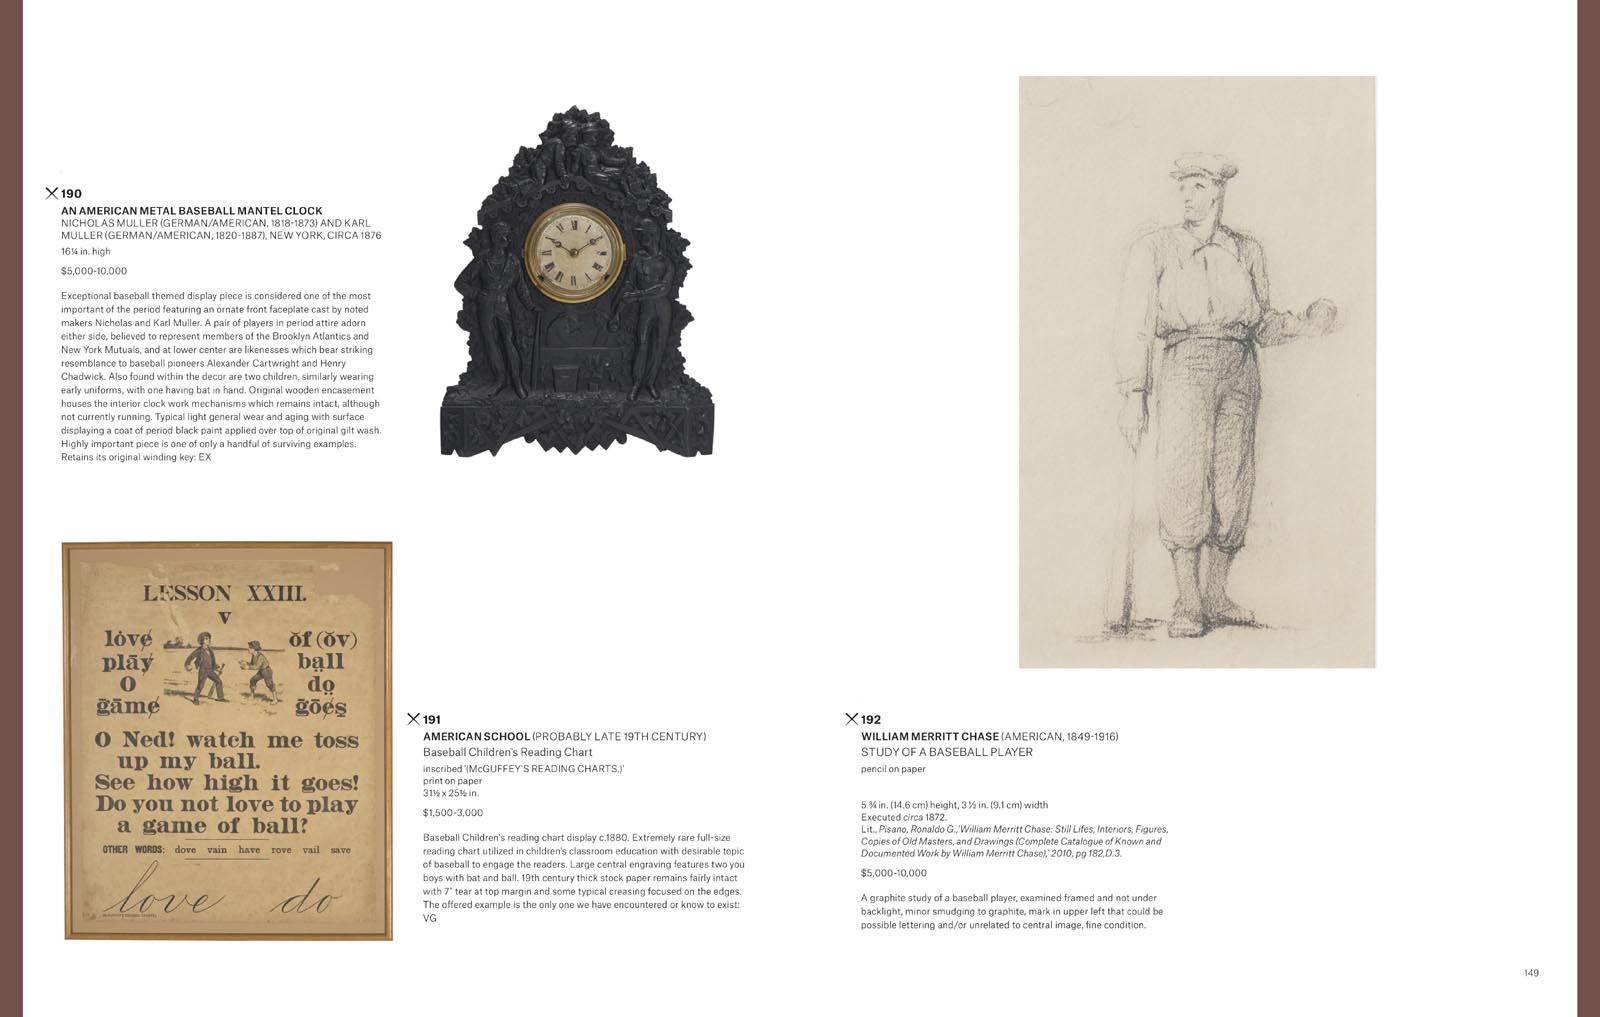 190
AN AMERICAN METAL BASEBALL MANTEL CLOCK
NICHOLAS MULLER (GERMAN/AMERICAN, 1818-1873) AND KARL
MULLER (GERMAN/AMERICAN, 1820-1887), NEW YORK, CIRCA 1876
16¼ in. high
$5,000-10,000
Exceptional baseball themed display piece is considered one of the most
important of the period featuring an ornate front faceplate cast by noted
makers Nicholas and Karl Muller. A pair of players in period attire adorn
either side, believed to represent members of the Brooklyn Atlantics and
New York Mutuals, and at lower center are likenesses which bear striking
resemblance to baseball pioneers Alexander Cartwright and Henry
Chadwick. Also found within the decor are two children, similarly wearing
early uniforms, with one having bat in hand. Original wooden encasement
houses the interior clock work mechanisms which remains intact, although
not currently running. Typical light general wear and aging with surface
displaying a coat of period black paint applied over top of original gilt wash.
Highly important piece is one of only a handful of surviving examples.
Retains its original winding key: EX
LESSON XXIII.
v
lȯve ŏf (ŏv)
plāy ba̤ll
O do̤
gāme gōes̱
O Ned! watch me toss
up my ball.
See how high it goes!
Do you not love to play
a game of ball?
OTHER WORDS: dove vain have rove vail save
love do
191
AMERICAN SCHOOL (PROBABLY LATE 19TH CENTURY)
Baseball Children's Reading Chart
inscribed '(McGUFFEY'S READING CHARTS.)'
print on paper
31½ x 25½ in.
$1,500-3,000
Baseball Children's reading chart display c.1880. Extremely rare full-size
reading chart utilized in children's classroom education with desirable topic
of baseball to engage the readers. Large central engraving features two you
boys with bat and ball. 19th century thick stock paper remains fairly intact
with 7" tear at top margin and some typical creasing focused on the edges.
The offered example is the only one we have encountered or know to exist:
VG
192
WILLIAM MERRITT CHASE (AMERICAN, 1849-1916)
STUDY OF A BASEBALL PLAYER
pencil on paper
5 ¾ in. (14.6 cm) height, 3 ½ in. (9.1 cm) width
Executed circa 1872.
Lit., Pisano, Ronaldo G.,'William Merritt Chase: Still Lifes, Interiors, Figures,
Copies of Old Masters, and Drawings (Complete Catalogue of Known and
Documented Work by William Merritt Chase),' 2010, pg 182,D.3.
$5,000-10,000
A graphite study of a baseball player, examined framed and not under
backlight, minor smudging to graphite, mark in upper left that could be
possible lettering and/or unrelated to central image, fine condition.
149